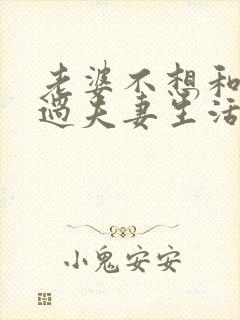 老婆不想和
过夫妻生活
小鬼安安